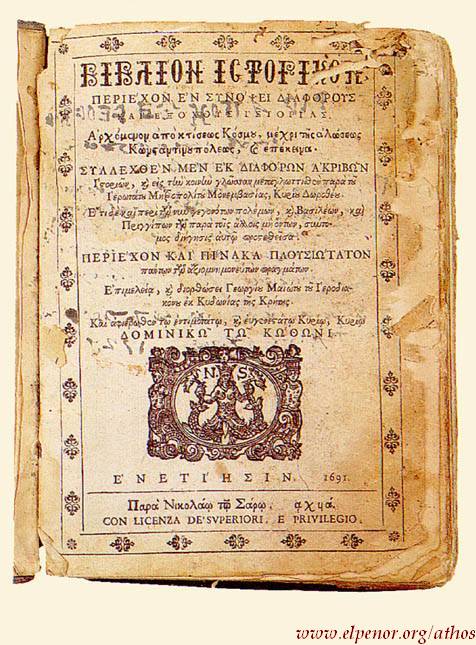 ΒΙΒΛΙΟΝ ΙΣΤΟΡΙΚΟΝ
ΠΕΡΙΕΧΟΝ Ε'Ν ΣΥΝΟΨΕΙ ΔΙΑΦΟΡΟΥΣ
ΙΣΤΟΡΙΑΣ.
Α'ρχόμενον από κτίσεως Κόσμου, μέχρι της αλώσεως
Κωνσταντινουπόλεως, & επέκεινα.
ΣΥΛΛΕΧΘΕ'Ν ΜΕ'Ν Ε'Κ ΔΙΑΦΟ'ΡΩΝ Α'ΚΡΙΒΩ͂Ν
Ι'στοριών, ϗ εις την κοινήν γλώσσαν μεταγλωττισθέν παρά του
Ι'ερωτάτου Μητροπολίτου Μονεμβασίας, Κυρίου Δωροθέου.
Ε'τι δε και περί των νυν γεγονότων πολέμων, ϗ Βασιλέων, και
Πριγγίπων των παρά τοις άλλοις
διήγησις αυτώ προσετέθεισα.
ΠΕΡΙΕΧΟΝ ΚΑΙ ΠΙΝΑΚΑ ΠΛΟΥΣΙΩ'ΤΑΤΟΝ
πάντων των αξιομνημονεύτων πραγμάτων.
Ε'πιμελεία, ϗ διορθώσει Γεωργίου Μαιώτα του Ι'εροδια-
κόνου εκ Κυδωνίας της Κρήτης.
Και αφιερωθέν τω εντιμοτάτω, ϗ ευγενεστάτω Κυρίω, Κυρίω
ΔΟΜΙΝΙΚΩ ΤΩ ΚΩΘΩΝΙ.
N S
Ε'ΝΕΤΙΗΣΙΝ. 1691.
Παρά Νικολάω τω Σάρω. αχϟά.
CON LICENZA DE' SVPERIORI, E PRIVILEGIO.
www.elpenor.org/athos